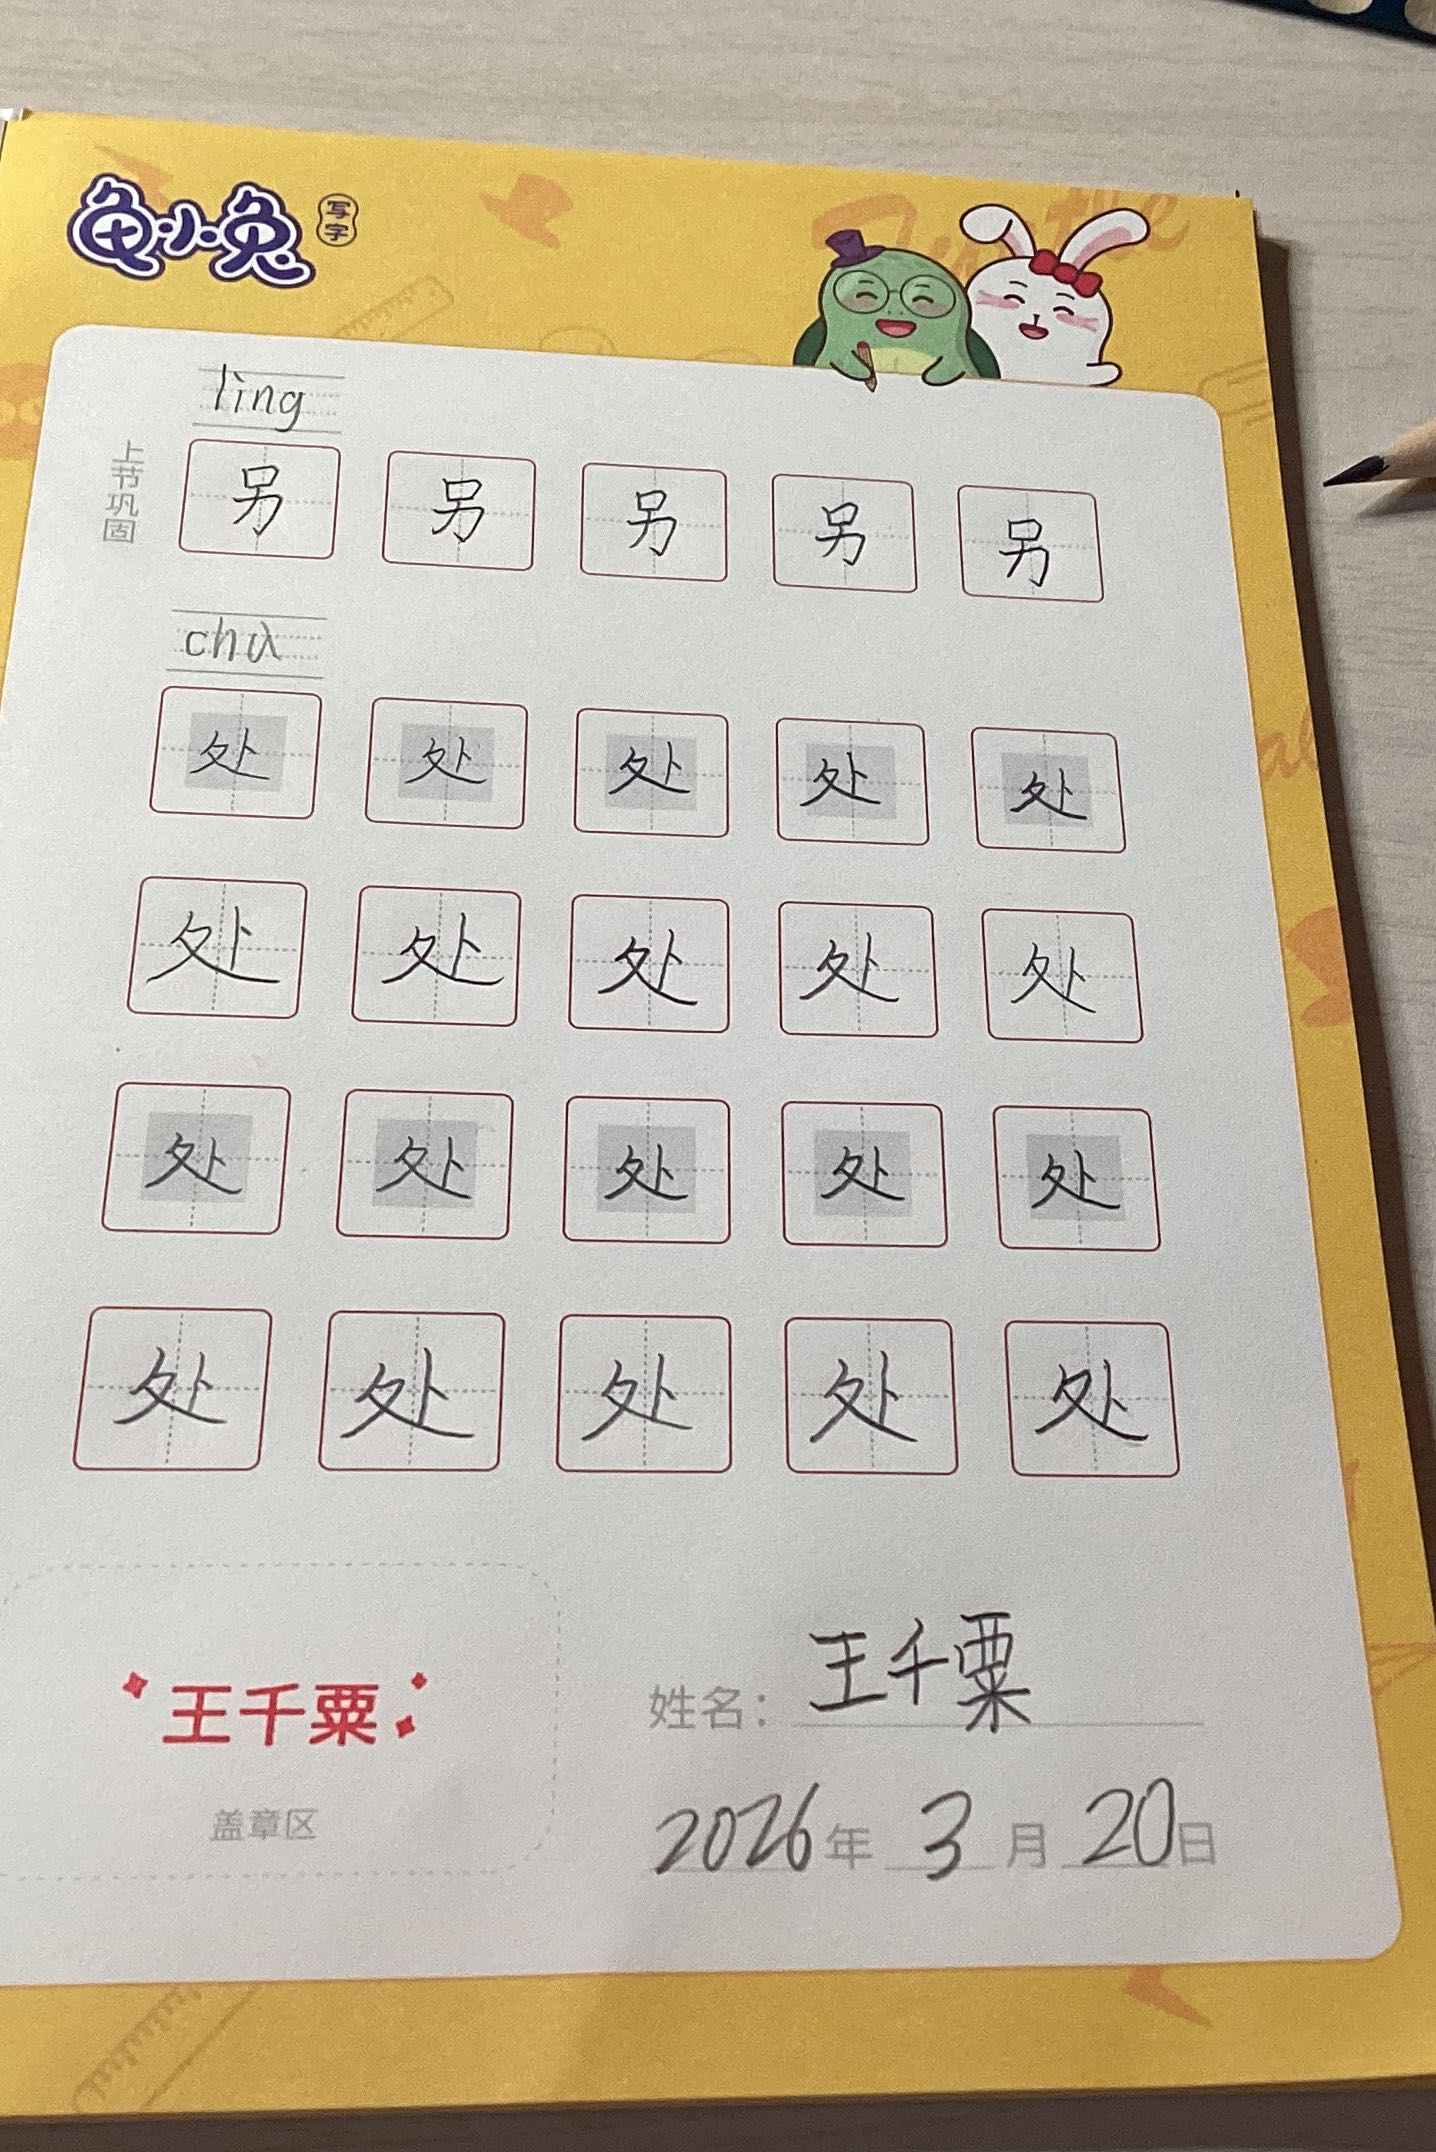 龟小兔 写字
lìng
上节巩固
另 另 另 另 另
chù
处 处 处 处 处
处 处 处 处 处
处 处 处 处 处
处 处 处 处 处
王千粟
盖章区
姓名：王千粟
2026年 3月 20日